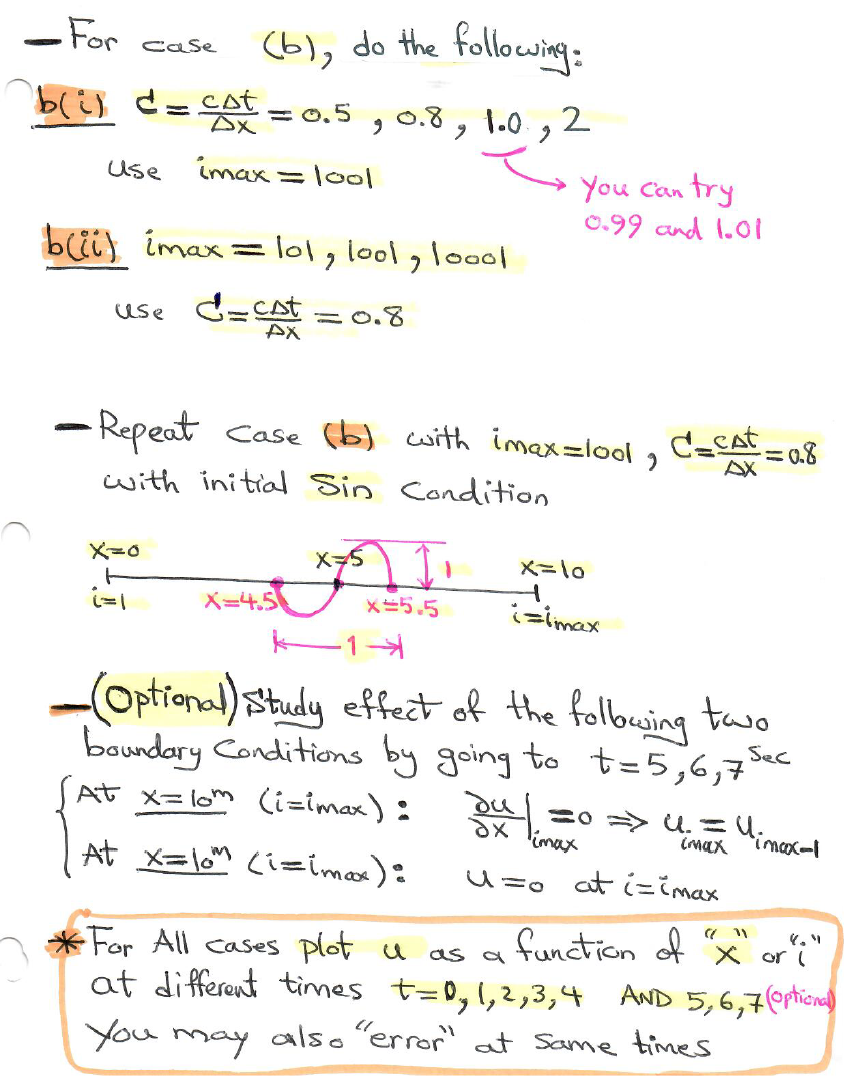 — For case (b), do the following:
b(i) C = cΔt/Δx = 0.5, 0.8, 1.0, 2
use imax = 1001
You can try
0.99 and 1.01
b(ii) imax = 101, 1001, 10001
use C = cΔt/Δx = 0.8
— Repeat case (b) with imax=1001, C = cΔt/Δx = 0.8
with initial Sin Condition
x=0
x=5
1
x=10
i=1
x=4.5
x=5.5
i=imax
1
— (Optional) Study effect of the following two
boundary Conditions by going to t=5,6,7 Sec
At x=10m (i=imax): ∂u/∂x|imax = 0 ⇒ u imax = u imax-1
At x=10m (i=imax): u=0 at i=imax
* For All cases plot u as a function of "x" or "i"
at different times t=0,1,2,3,4 AND 5,6,7 (optional)
You may also "error" at same times